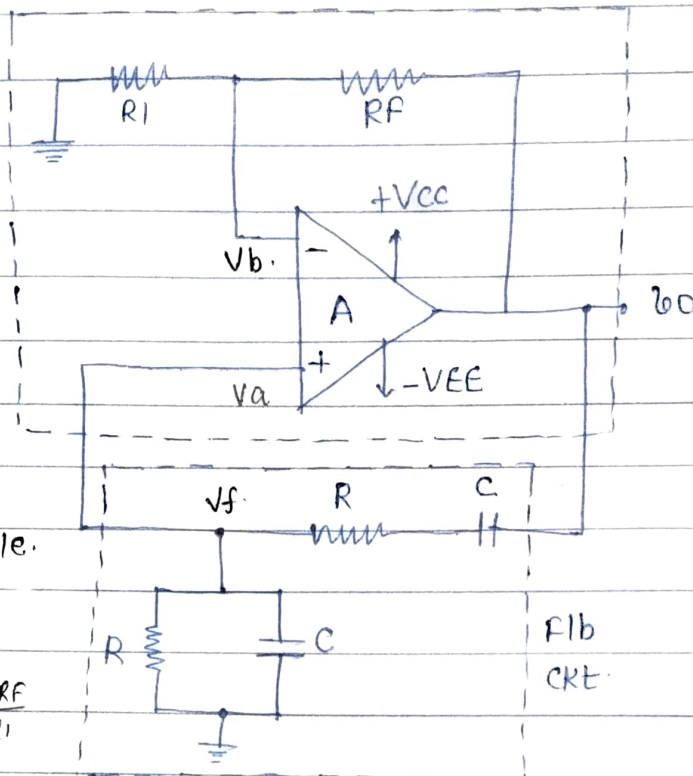 R1
RF
+VCC
Vb.
-
A
vo
+
Va
-VEE
Vf.
R
C
le.
R
C
F/b
CKt.
RF